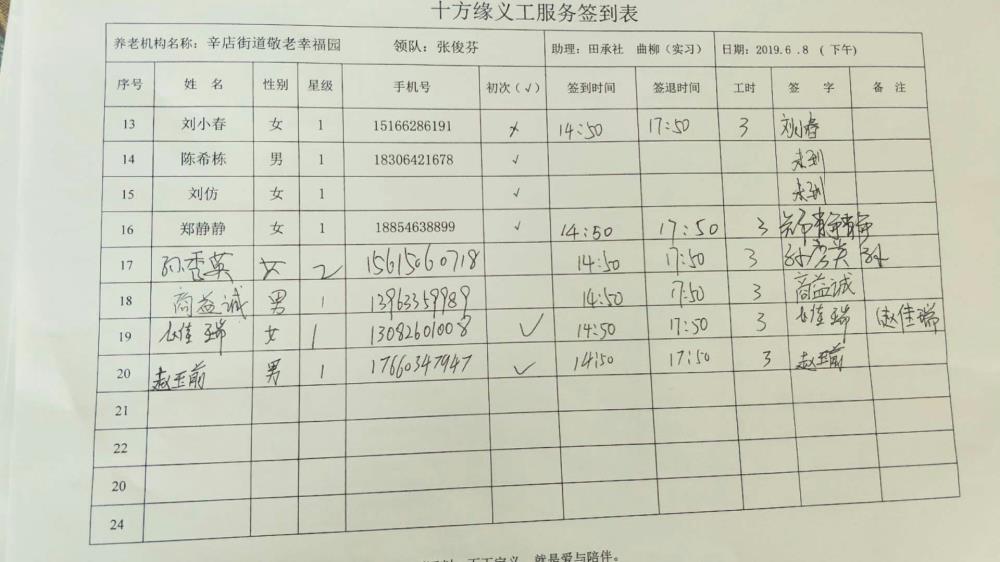 十方缘义工服务签到表
养老机构名称：辛店街道敬老幸福园 领队：张俊芬 助理：田承社 曲柳（实习） 日期：2019.6.8（下午）
序号 姓名 性别 星级 手机号 初次（√） 签到时间 签退时间 工时 签字 备注
13 刘小春 女 1 15166286191 × 14:50 17:50 3 刘小春
14 陈希栋 男 1 18306421678 √ 未到
15 刘仿 女 1 √ 未到
16 郑静静 女 1 18854638899 √ 14:50 17:50 3 郑静静
17 孙秀英 女 2 15615060718 14:50 17:50 3 孙秀英 孙
18 商益诚 男 1 13963359989 14:50 17:50 3 商益诚
19 赵佳瑞 女 1 13082601008 √ 14:50 17:50 3 赵佳瑞 赵佳瑞
20 赵玉前 男 1 17660347947 √ 14:50 17:50 3 赵玉前
21
22
20
24
就是爱与陪伴。